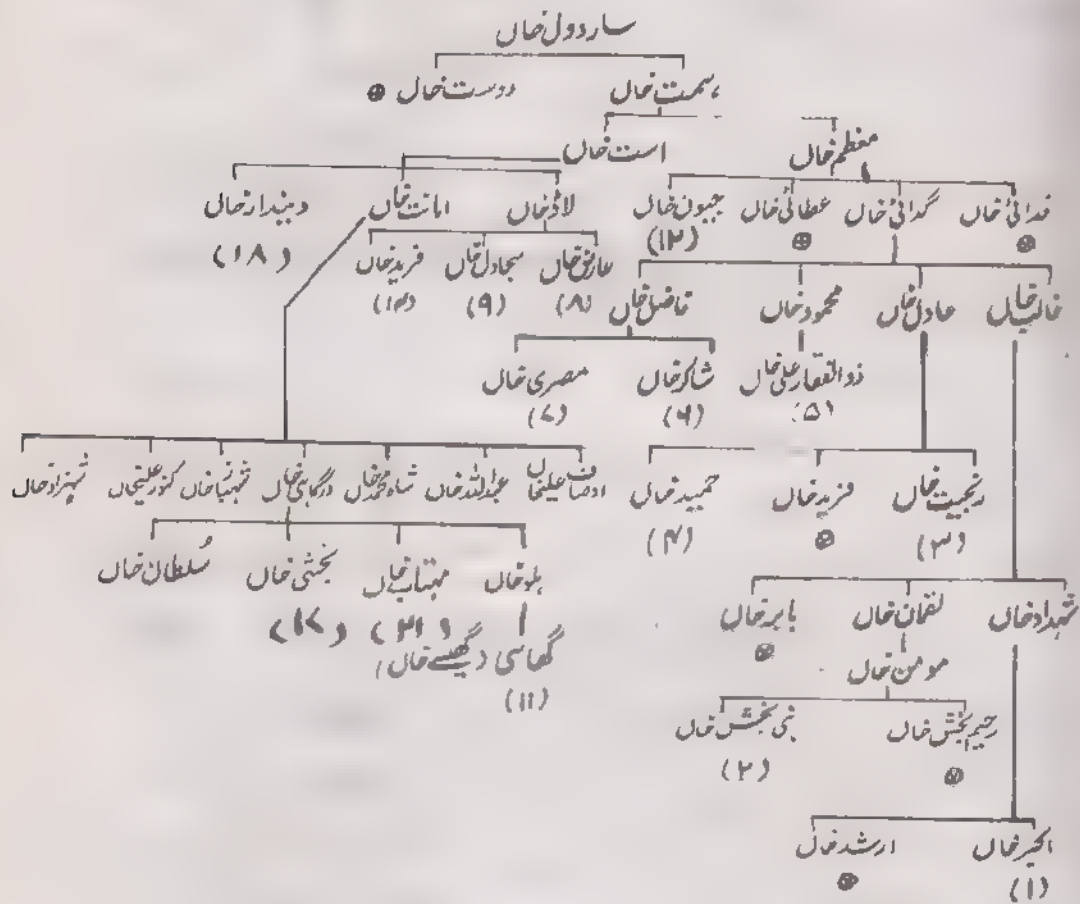 ساردول خاں
ہمت خاں دوست خاں
معظم خاں است خاں
فدائی خاں گدائی خاں عطائی خاں جیون خاں لاڈ خاں امانت خاں دیندار خاں
(۱۲) (۱۸)
عارف خاں سجادل خاں فرید خاں
(۸) (۹) (۱۰)
غالب خاں عادل خاں محمود خاں فاضل خاں
ذوالفقار علی خاں شاکر خاں مصری خاں
(۵) (۶) (۷)
رنجیت خاں فرید خاں حمید خاں
(۳) (۴)
اوصاف علیخاں عبداللہ خاں شاہ محمد خاں درگاہی خاں شہنیاز خاں کنور علیخاں شہزاد خاں
بلو خاں مہتاب خاں بخشی خاں سلطان خاں
(۳۱) (۱۷)
گھاسی (گھیسے خاں)
(۱۱)
شہداد خاں لقمان خاں بابر خاں
مومن خاں
رحیم بخش خاں نبی بخش خاں
(۲)
اکبر خاں ارشد خاں
(۱)